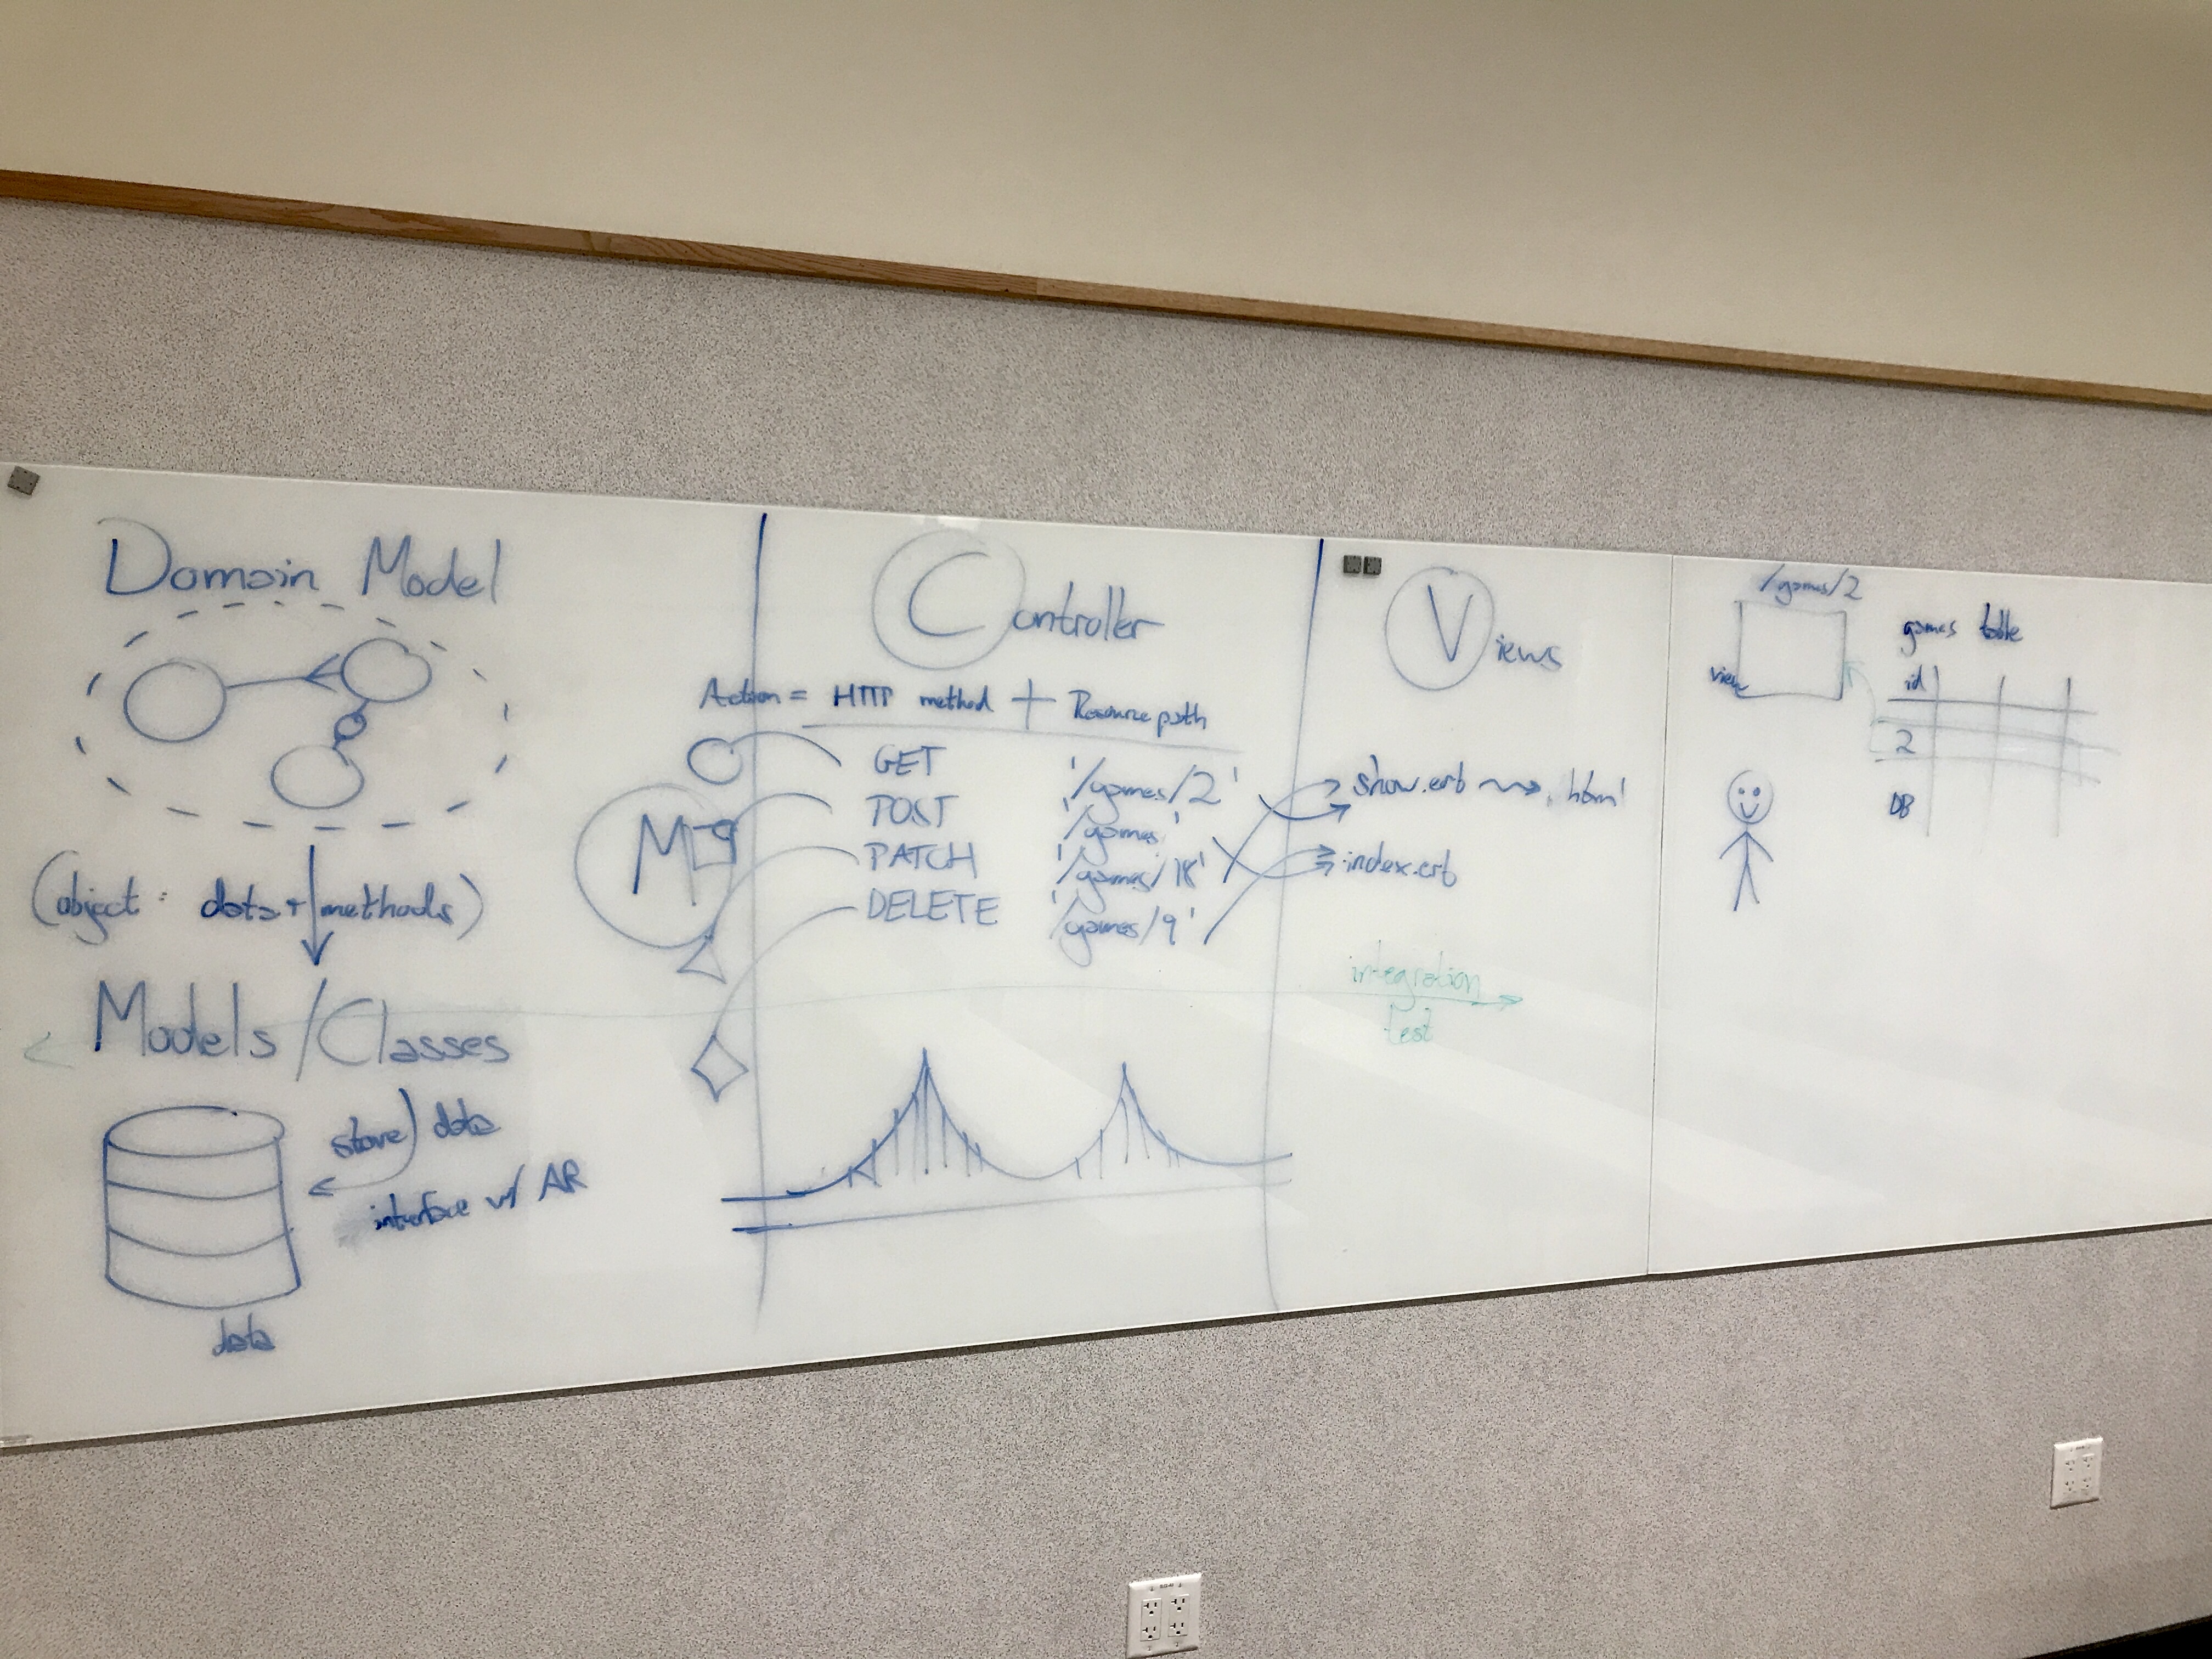 Domain Model
(object: data + methods)
Models/Classes
store data
interface w/ AR
data
M
Controller
Action = HTTP method + Resource path
GET '/games/2'
POST '/games'
PATCH '/games/18'
DELETE '/games/9'
Views
show.erb .html
index.erb
integration
test
/games/2
view
games table
id
2
DB